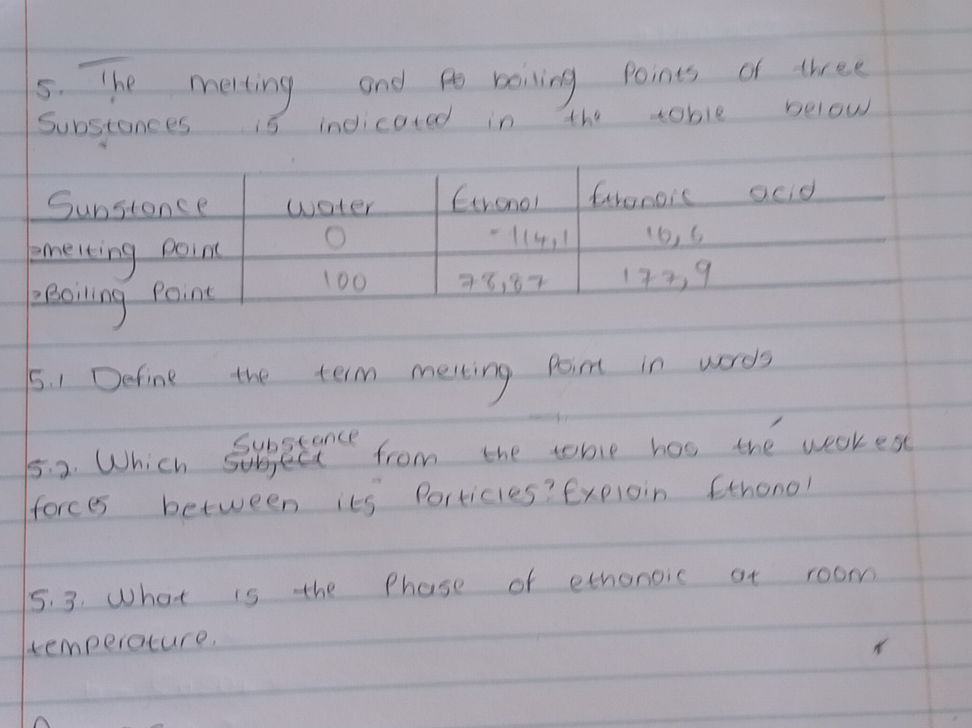 5. The melting and po boiling points of three
Substances is indicated in the table below
Substance Water Ethanol Ethanoic acid
melting point 0 -114,1 16,6
Boiling Point 100 78,87 177,9
5.1 Define the term melting Point in words
Substance
5.2. Which subject from the table has the weakest
forces between its Particles? Explain Ethanol
5.3. What is the Phase of ethanoic at room
temperature.